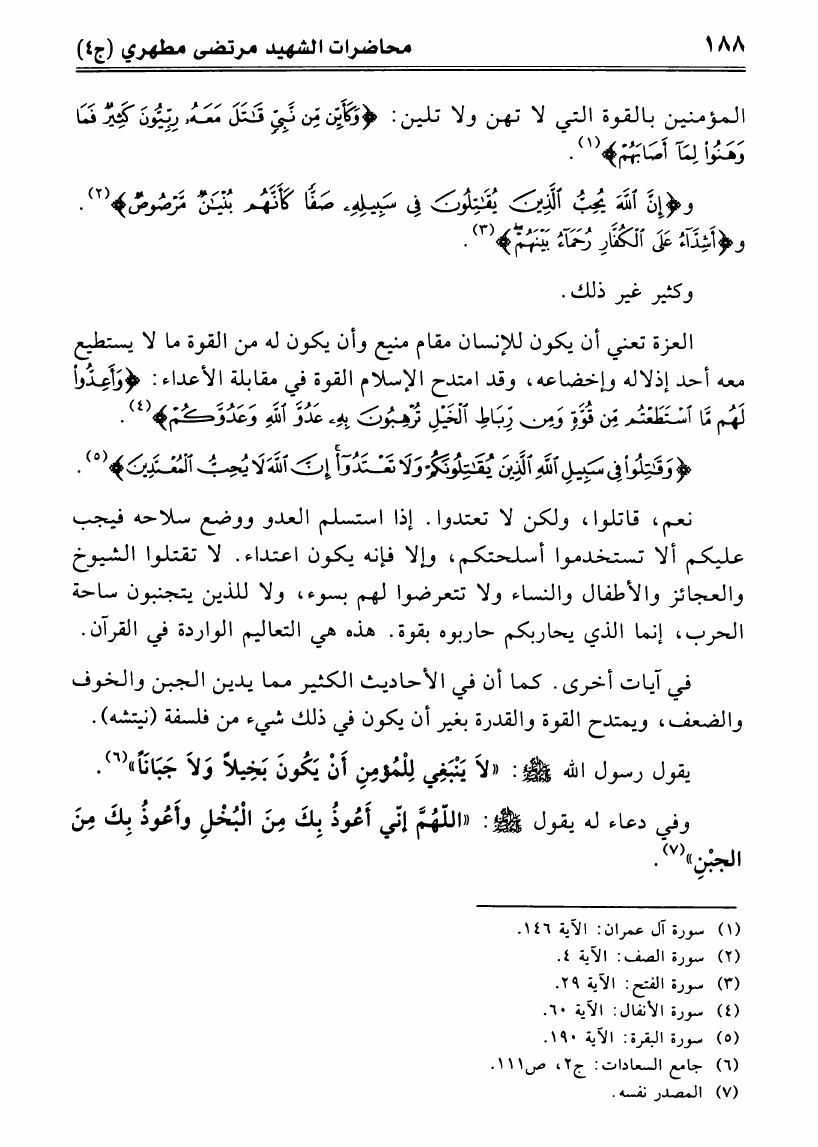 ١٨٨ محاضرات الشهيد مرتضى مطهري (ج٤)
المؤمنين بالقوة التي لا تهن ولا تلين: ﴿وَكَأَيِّن مِّن نَّبِيٍّ قَٰتَلَ مَعَهُۥ رِبِّيُّونَ كَثِيرٌ فَمَا
وَهَنُوا۟ لِمَآ أَصَابَهُمْ﴾(١).
و﴿إِنَّ ٱللَّهَ يُحِبُّ ٱلَّذِينَ يُقَٰتِلُونَ فِى سَبِيلِهِۦ صَفًّا كَأَنَّهُم بُنْيَٰنٌ مَّرْصُوصٌ﴾(٢).
و﴿أَشِدَّآءُ عَلَى ٱلْكُفَّارِ رُحَمَآءُ بَيْنَهُمْ ۖ﴾(٣).
وكثير غير ذلك.
العزة تعني أن يكون للإنسان مقام منيع وأن يكون له من القوة ما لا يستطيع
معه أحد إذلاله وإخضاعه، وقد امتدح الإسلام القوة في مقابلة الأعداء: ﴿وَأَعِدُّوا۟
لَهُم مَّا ٱسْتَطَعْتُم مِّن قُوَّةٍ وَمِن رِّبَاطِ ٱلْخَيْلِ تُرْهِبُونَ بِهِۦ عَدُوَّ ٱللَّهِ وَعَدُوَّكُمْ﴾(٤).
﴿وَقَٰتِلُوا۟ فِى سَبِيلِ ٱللَّهِ ٱلَّذِينَ يُقَٰتِلُونَكُمْ وَلَا تَعْتَدُوٓا۟ ۚ إِنَّ ٱللَّهَ لَا يُحِبُّ ٱلْمُعْتَدِينَ﴾(٥).
نعم، قاتلوا، ولكن لا تعتدوا. إذا استسلم العدو ووضع سلاحه فيجب
عليكم ألا تستخدموا أسلحتكم، وإلا فإنه يكون اعتداء. لا تقتلوا الشيوخ
والعجائز والأطفال والنساء ولا تتعرضوا لهم بسوء، ولا للذين يتجنبون ساحة
الحرب، إنما الذي يحاربكم حاربوه بقوة. هذه هي التعاليم الواردة في القرآن.
في آيات أخرى. كما أن في الأحاديث الكثير مما يدين الجبن والخوف
والضعف، ويمتدح القوة والقدرة بغير أن يكون في ذلك شيء من فلسفة (نيتشه).
يقول رسول الله ﷺ: «لاَ يَنْبَغِي لِلْمُؤمِنِ أَنْ يَكُونَ بَخِيلاً وَلاَ جَبَانَاً»(٦).
وفي دعاء له يقول ﷺ: «اللّهُمَّ إنّي أَعُوذُ بِكَ مِنَ الْبُخْلِ وأَعُوذُ بِكَ مِنَ
الجبْنِ»(٧).
(١) سورة آل عمران: الآية ١٤٦.
(٢) سورة الصف: الآية ٤.
(٣) سورة الفتح: الآية ٢٩.
(٤) سورة الأنفال: الآية ٦٠.
(٥) سورة البقرة: الآية ١٩٠.
(٦) جامع السعادات: ج٢، ص١١١.
(٧) المصدر نفسه.